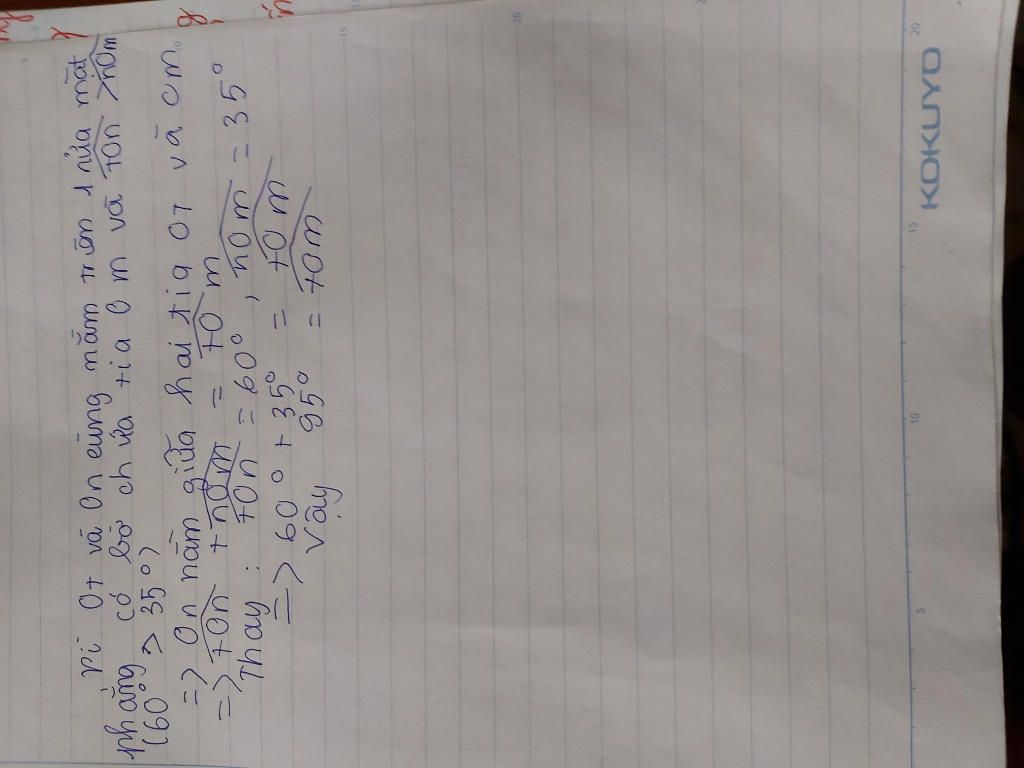 Vì Ot và On cùng nằm trên 1 nửa mặt
phẳng có bờ chứa tia Om và tOn > nOm
(60° > 35°)
=> On nằm giữa hai tia Ot và Om
=> tOn + nOm = tOm
Thay : tOn = 60° , nOm = 35°
=> 60° + 35° = tOm
Vậy 95° = tOm
KOKUYO
5
10
15
20